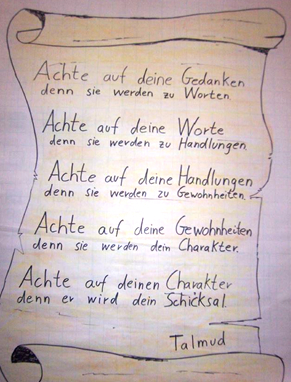 Achte auf deine Gedanken
denn sie werden zu Worten.
Achte auf deine Worte
denn sie werden zu Handlungen.
Achte auf deine Handlungen
denn sie werden zu Gewohnheiten.
Achte auf deine Gewohnheiten
denn sie werden dein Charakter.
Achte auf deinen Charakter
denn er wird dein Schicksal.
Talmud